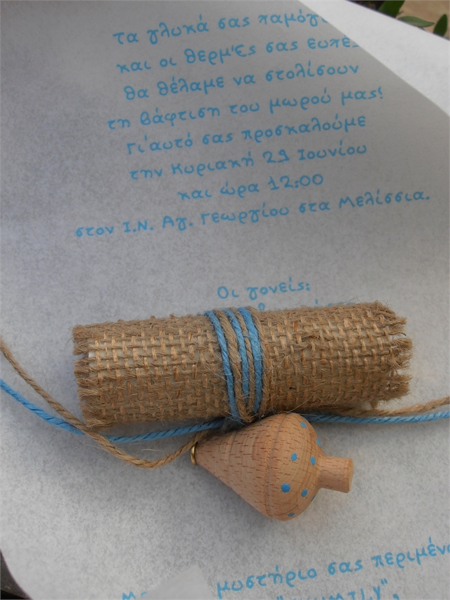 τα γλυκά σας παμόγ
και οι θερμές σας ευπε
θα θέλαμε να στολίσουν
τη βάφτιση του μωρού μας!
Γι'αυτό σας προσκαλούμε
την Κυριακή 29 Ιουνίου
και ώρα 12:00
στον Ι.Ν. Αγ. Γεωργίου στα Μελίσσια.
Οι γονείς:
μυστήριο σας περιμένο